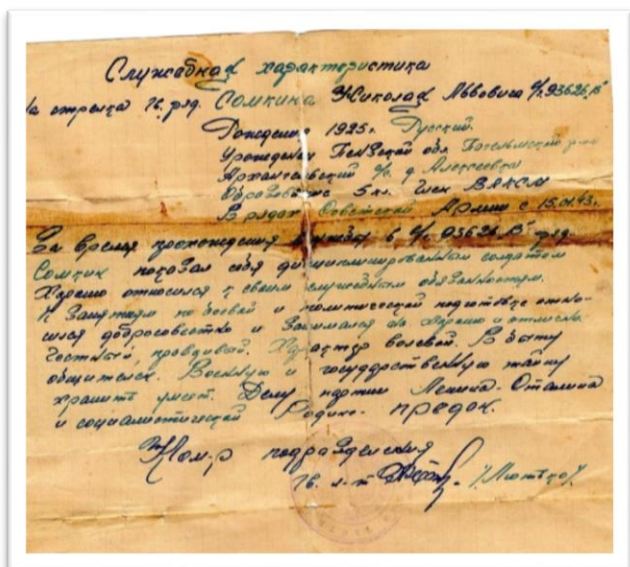 Служебная характеристика
На стрелка гв. ряд. Сомкина Николая Львовича в/ч 93626 "В"
Рождения 1925г. Русский.
Уроженец Пензенской обл.
Архангельский с/с. д. Алексеевка
Образование 5 кл. Член ВЛКСМ
В рядах Советской Армии с 15.01.43.
За время прохождения службы в в/ч 93626 "В" ряд.
Сомкин показал себя дисциплинированным солдатом
Хорошо относился к своим служебным обязанностям.
К занятиям по боевой и политической подготовке отно-
сился добросовестно и занимался на хорошо и отлично.
Честный, правдивый. Характер волевой. В быту
общителен. Военную и государственную тайну
хранить умеет. Делу партии Ленина-Сталина
и социалистической Родине - предан.
Ком-р подразделения
гв. л-т /Лютько/.